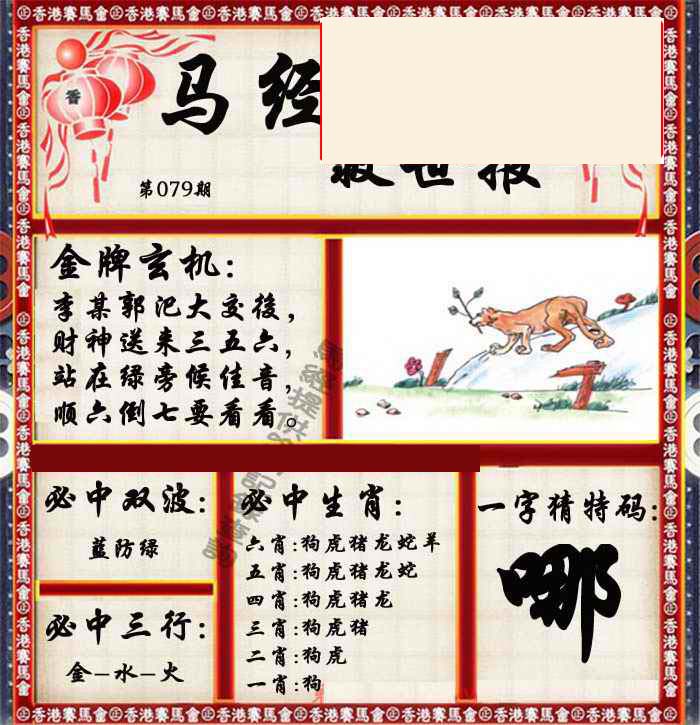 马经
救世报
第079期
金牌玄机:
李某郭汜大交後,
财神送来三五六,
站在绿旁候佳音,
顺六倒七要看看。
必中双波:
蓝防绿
必中三行:
金-水-火
必中生肖:
六肖:狗虎猪龙蛇羊
五肖:狗虎猪龙蛇
四肖:狗虎猪龙
三肖:狗虎猪
二肖:狗虎
一肖:狗
一字猜特码:
哪
香港賽馬會
香